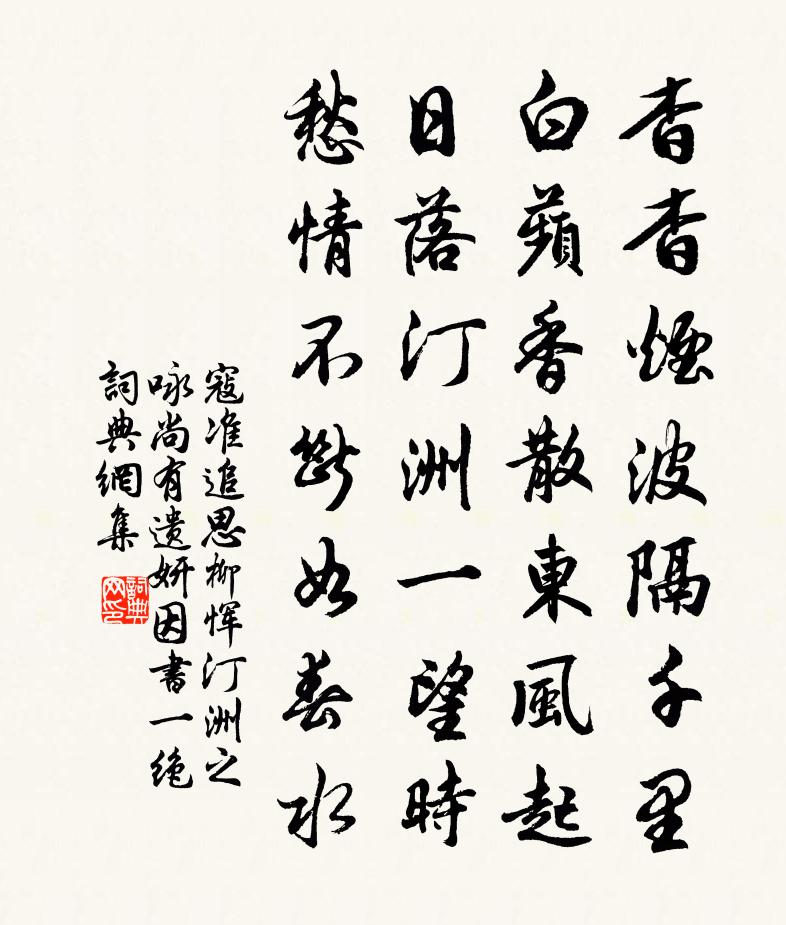 杳杳煙波隔千里
白蘋香散東風起
日落汀洲一望時
愁情不斷如春水
寇准追思柳惲汀洲之
咏尚有遺妍因書一絕
詞典網集
詞典網印